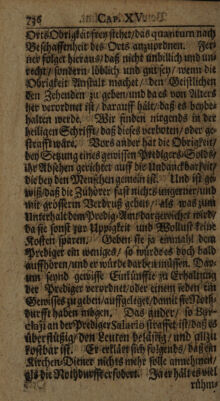 736 CAP. XV.
Orts Obrigkeit frey stehet / das quantum nach
Beschaffenheit des Orts anzuordnen. Fer
ner folget hieraus / daß nicht unbillich und un-
recht / sondern löblich und gut sey / wenn die
Obrigkeit Anstalt machet / den Geistlichen
den Zehenden zu geben und da es von Alters
her verordnet ist / darauff hält / daß es beybe
halten werde. Wir finden nirgends in der
heiligen Schrifft / daß dieses verboten / oder ge-
strafft wäre. Vors ander hat die Obrigkeit /
bey Setzung eines gewissen Predigers Solds /
ihr Absehen gerichtet auff die Undanckbarkeit /
die bey den Menschen gemein ist. Und ist ge-
wiß / daß die Zuhörer fast nichts ungerner / und
mit grösserm Verdruß geben / als was zum
Unterhalt dem Predig-Amt dargereichet wird /
da sie sonst zur Uppigkeit und Wollust keine
Kosten sparen. Geben sie ja einmahl dem
Prediger ein weniges / so würde es doch bald
auffhören / und er würde darben müssen. Dar-
um seynd gewisse Einkünffte zu Erhaltung
der Prediger verordnet / oder einem jeden ein
Gewisses zu geben / auffgeleget / damit sie Noth-
durfft haben mögen. Das ander / so
an der Prediger Salario straffet ist / daß es
überflüßig / den Leuten beläftig / und allzu
kostbar ist. Er erklärt sich folgends / daß ein
Kirchen-Diener nichts mehr solle annehmen /
als die Nothdurfft erfodert. Ja er hält es viel
rühm-